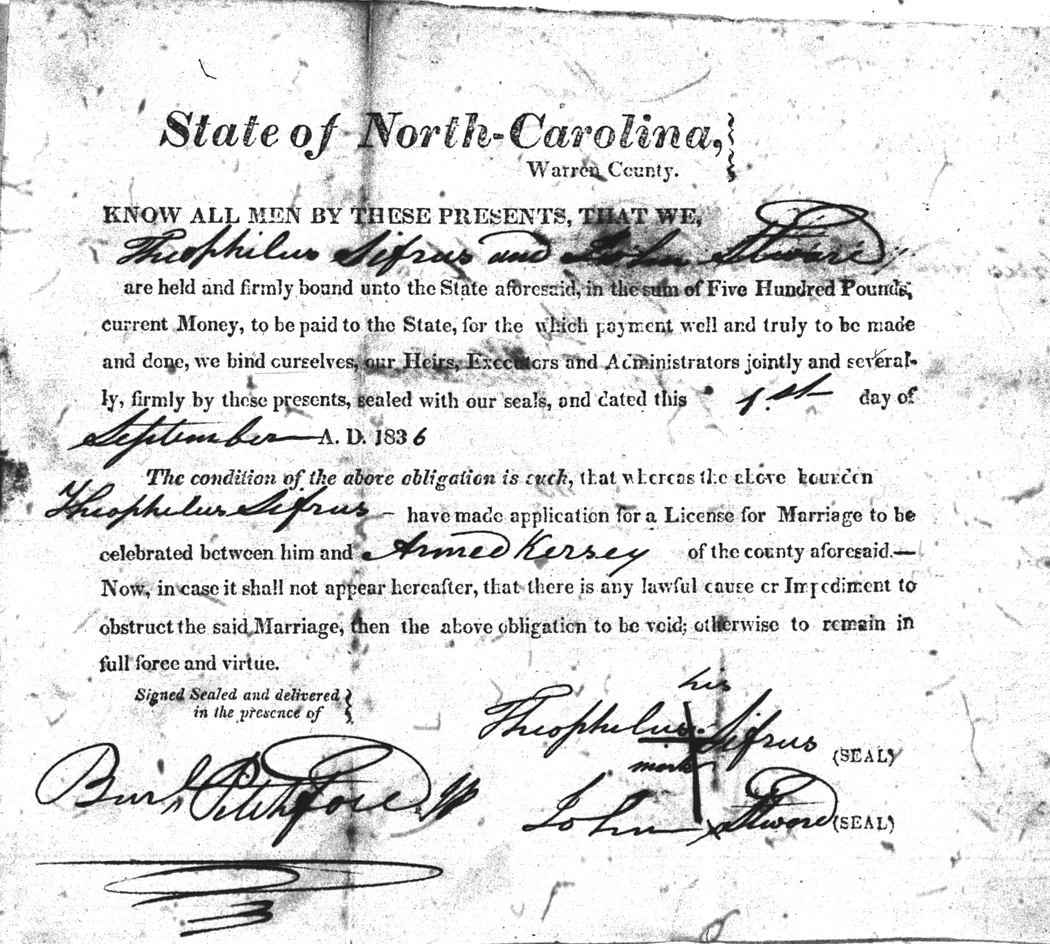 State of North-Carolina,
Warren County.
KNOW ALL MEN BY THESE PRESENTS, THAT WE,
Theophilus Sifrus and John Stward
are held and firmly bound unto the State aforesaid, in the sum of Five Hundred Pounds,
current Money, to be paid to the State, for the which payment well and truly to be made
and done, we bind ourselves, our Heirs, Executors and Administrators jointly and several-
ly, firmly by these presents, sealed with our seals, and dated this 1st day of
September A. D. 1836
The condition of the above obligation is such, that whereas the above bounden
Theophilus Sifrus - have made application for a License for Marriage to be
celebrated between him and Armed Kersey of the county aforesaid.—
Now, in case it shall not appear hereafter, that there is any lawful cause or Impediment to
obstruct the said Marriage, then the above obligation to be void; otherwise to remain in
full force and virtue.
Signed Sealed and delivered
in the presence of
his
Theophilus Sifrus (SEAL)
mark
Burl Pitchford
John Stward (SEAL)